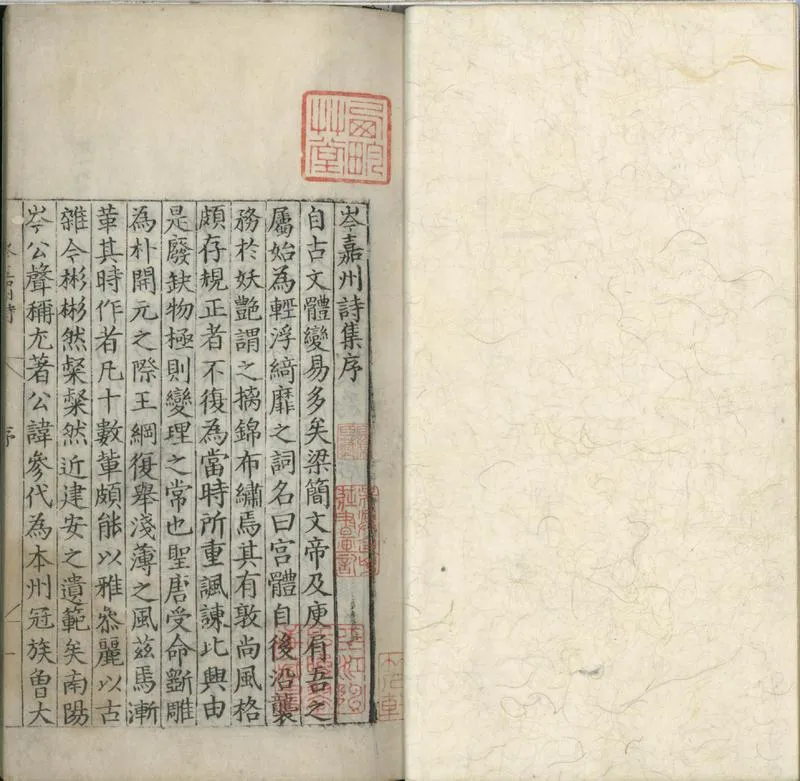 岑嘉州詩集序
自古文體變易多矣梁簡文帝及庾肩吾之
屬始為輕浮綺靡之詞名曰宮體自後沿襲
務於妖艷謂之摛錦布繡焉其有敦尚風格
頗存規正者不復為當時所重諷諫比興由
是廢缺物極則變理之常也聖唐受命斵雕
為朴開元之際王綱復舉淺薄之風茲焉漸
革其時作者凡十數輩頗能以雅叅麗以古
雜今彬彬然粲粲然近建安之遺範矣南陽
岑公聲稱尤著公諱參代為本州冠族曾大
序